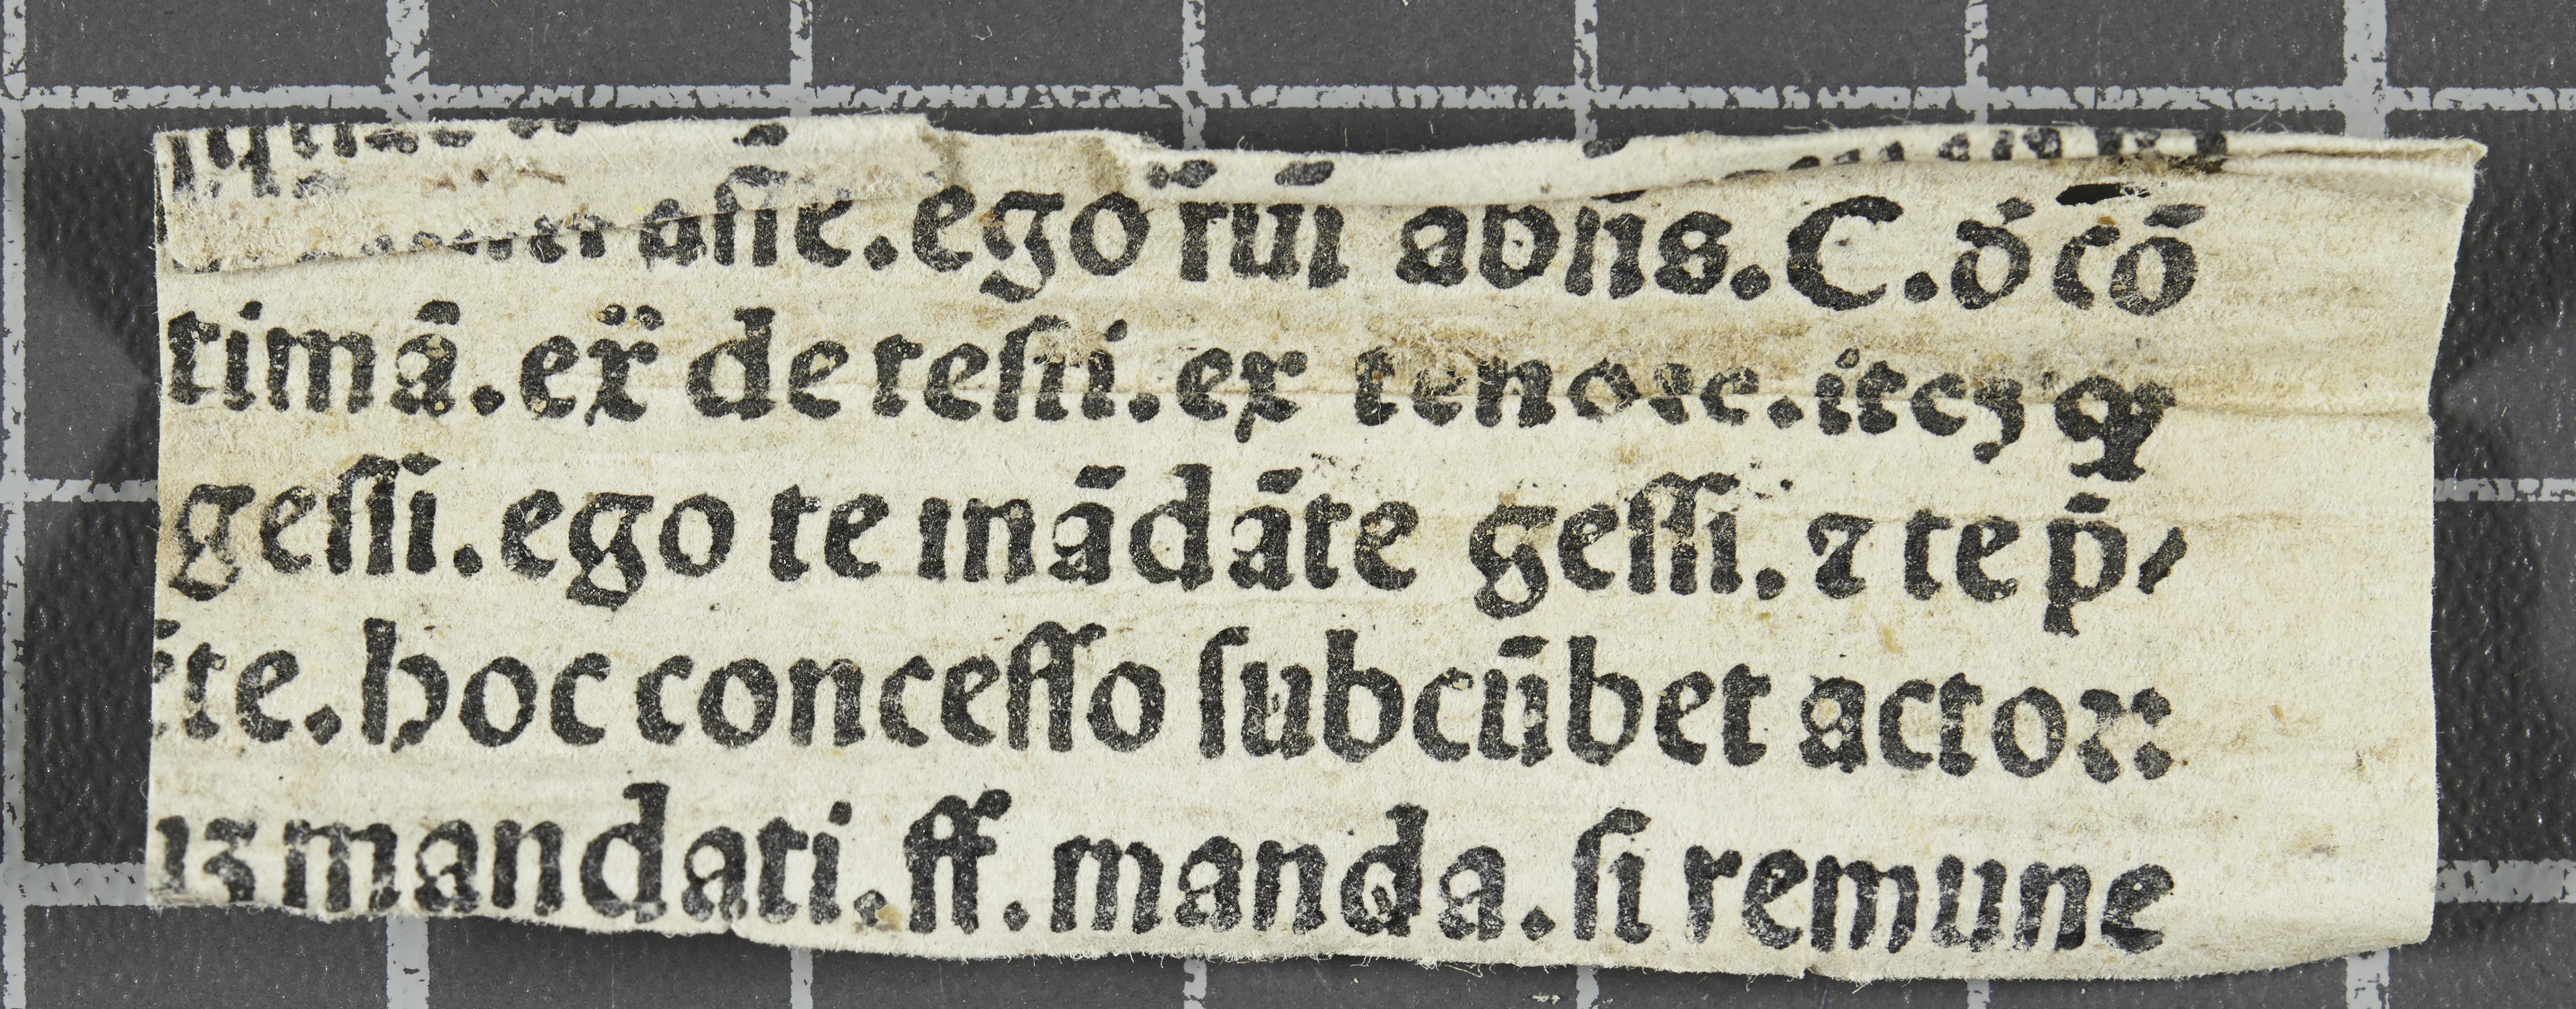 aſſe. ego fui abſiſ. C. đ cō
timā. ex̄ de teſti. ex tenore. itcʒ ꝙ
geſſi. ego te mādāte geſſi. ⁊ te p̄⸗
ēte. hoc conceſſo ſubcūbet actoꝛ:
mandati. ff. manda. ſi remune